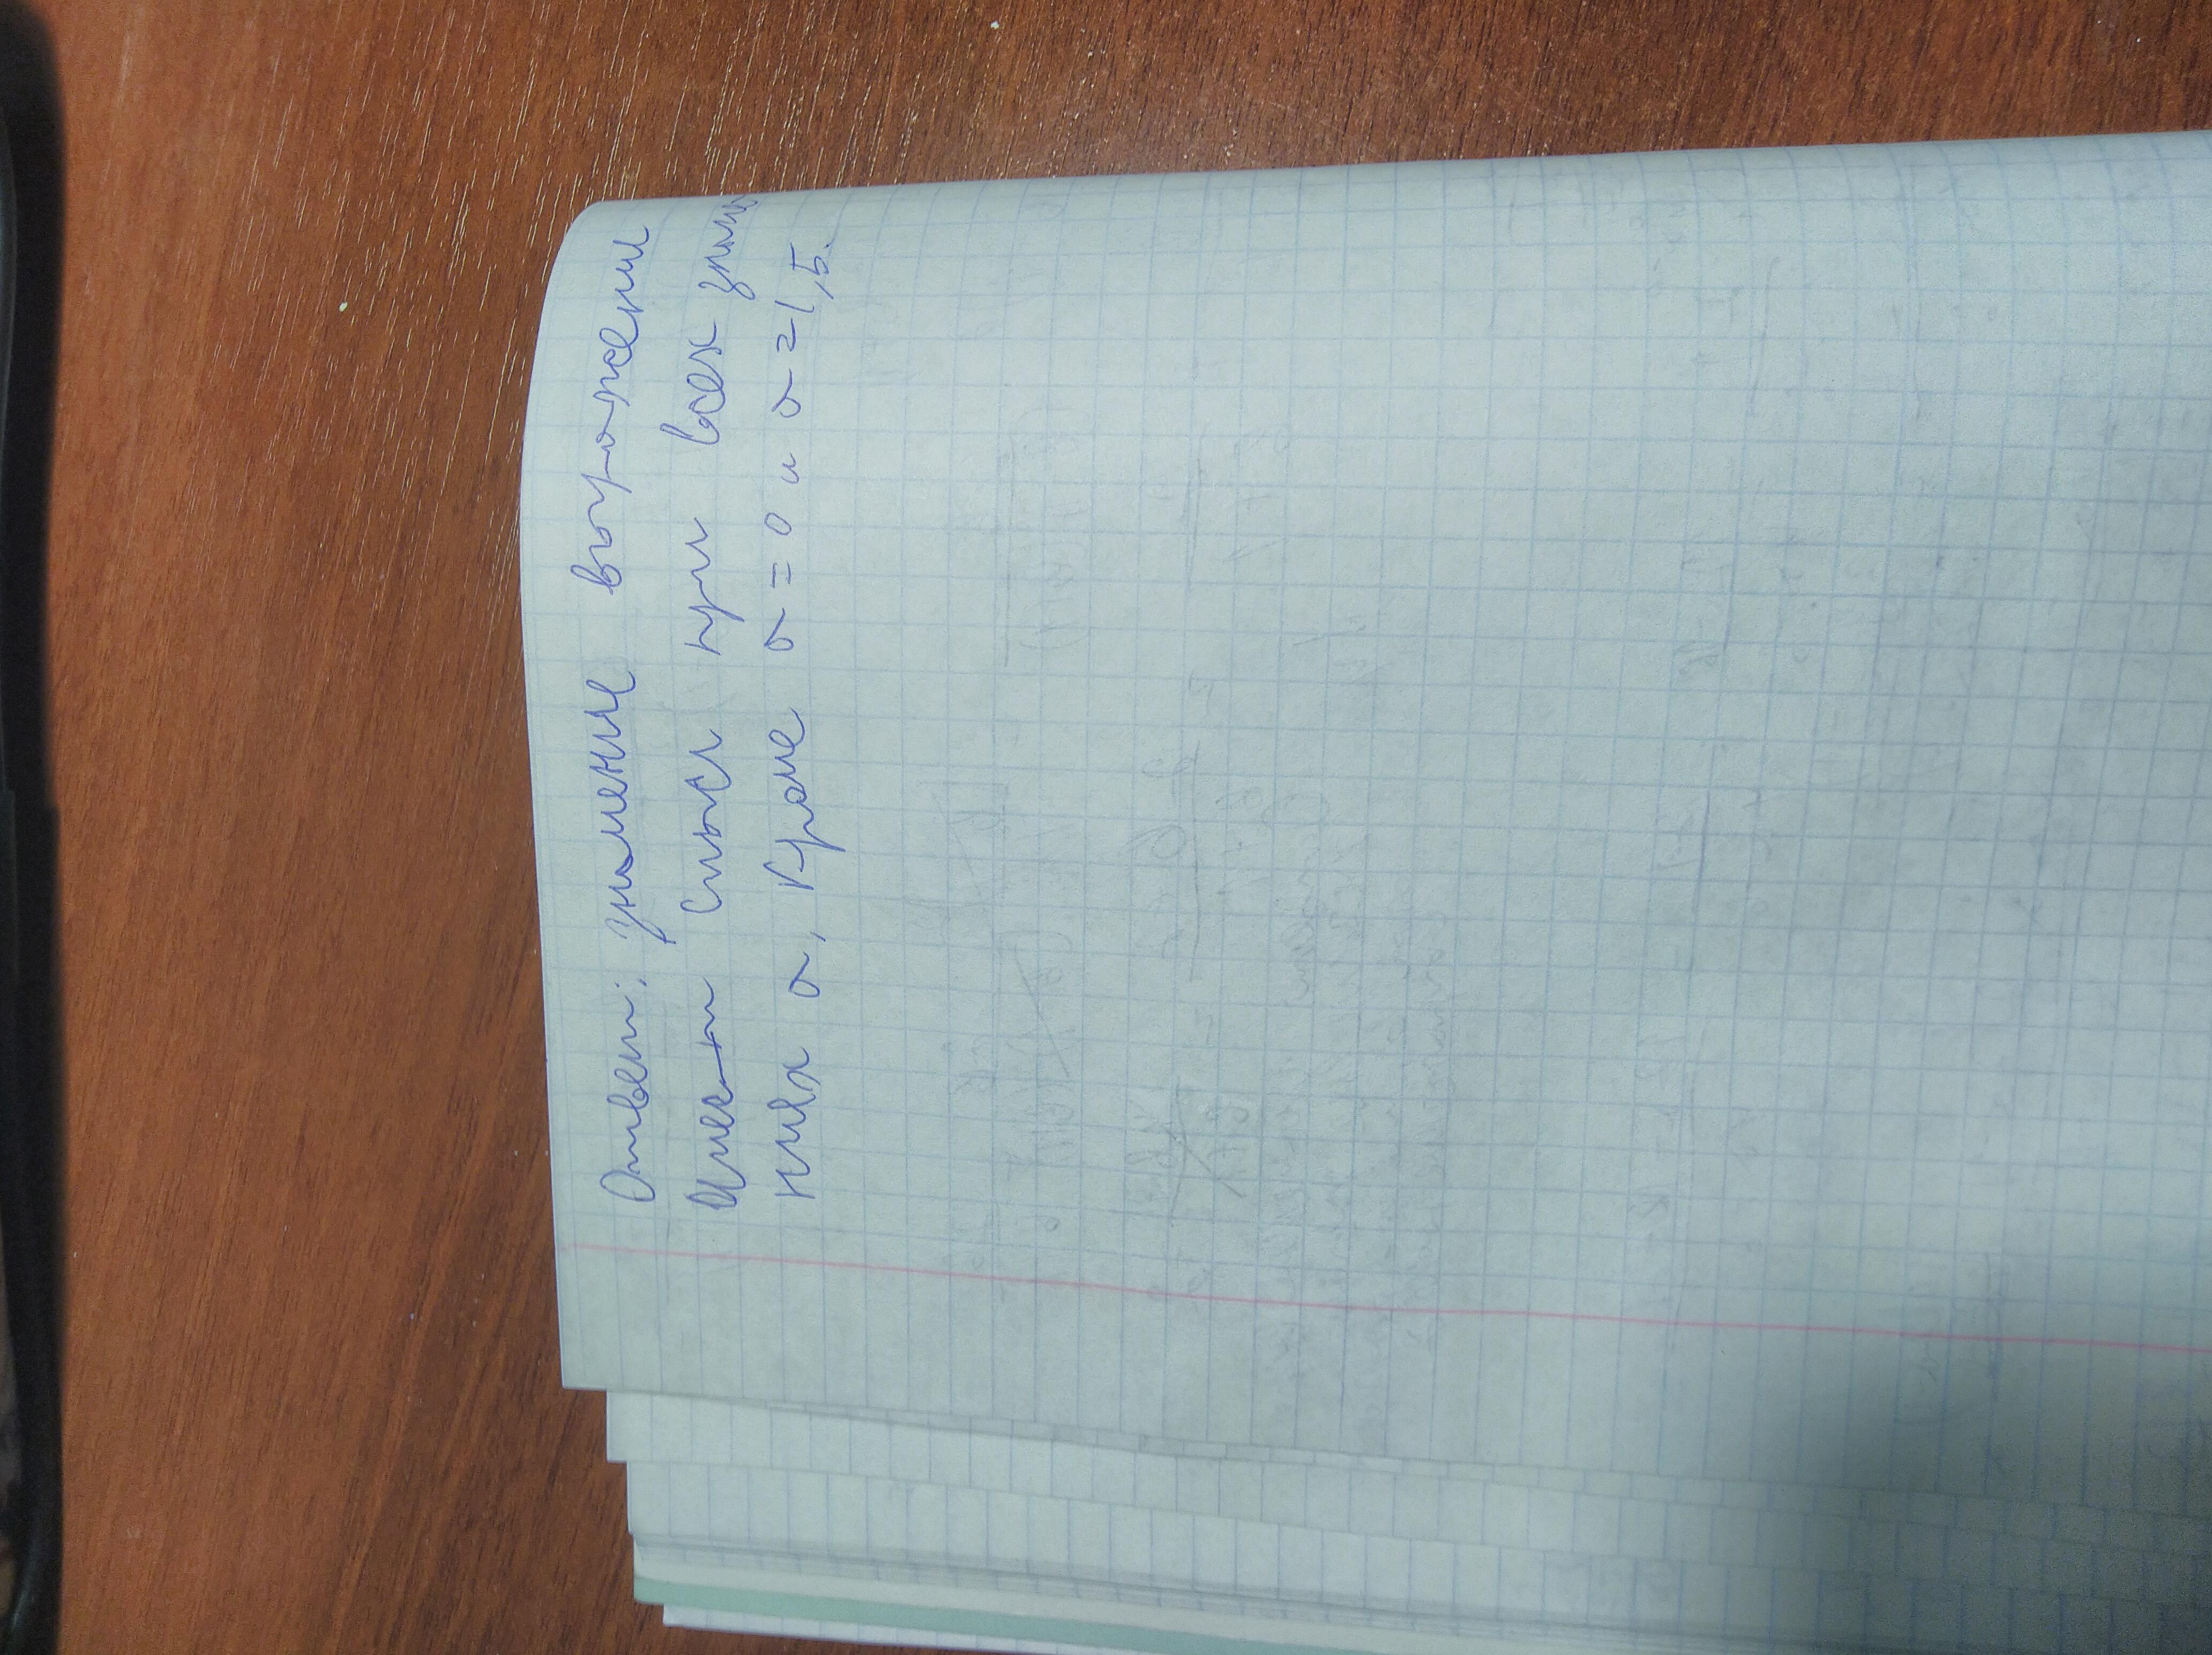 Ответ: значение выражени
Имеет смысл при всех знач
ниях а, кроме а = 0 и а = 1,5.